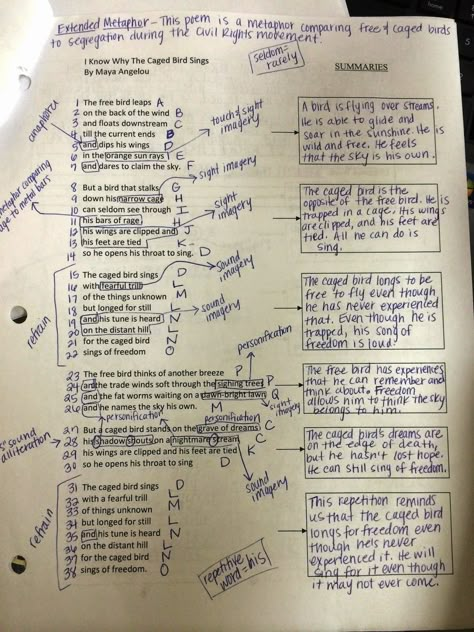 Extended Metaphor - This poem is a metaphor comparing free & caged birds
to segregation during the Civil Rights movement.
I Know Why The Caged Bird Sings
By Maya Angelou
seldom=
rarely
SUMMARIES
anaphora
1 The free bird leaps A
2 on the back of the wind B
3 and floats downstream C
4 till the current ends B
5 and dips his wings D
6 in the orange sun rays E
7 and dares to claim the sky. F
touch & sight
imagery
sight imagery
A bird is flying over streams.
He is able to glide and
soar in the sunshine. He is
wild and free. He feels
that the sky is his own.
metaphor comparing
cage to metal bars
8 But a bird that stalks G
9 down his narrow cage H
10 can seldom see through I
11 his bars of rage H
12 his wings are clipped and J
13 his feet are tied K
14 so he opens his throat to sing. D
sight
imagery
The caged bird is the
opposite of the free bird. He is
trapped in a cage. His wings
are clipped, and his feet are
tied. All he can do is
sing.
refrain
15 The caged bird sings D
16 with fearful trill L
17 of the things unknown M
18 but longed for still L
19 and his tune is heard N
20 on the distant hill, L
21 for the caged bird N
22 sings of freedom O
sound
imagery
sound
imagery
The caged bird longs to be
free to fly even though
he has never experienced
that. Even though he is
trapped, his song of
freedom is loud.
personification
23 The free bird thinks of another breeze P
24 and the trade winds soft through the sighing trees P
25 and the fat worms waiting on a dawn-bright lawn Q
26 and he names the sky his own. M
sight
imagery
The free bird has experiences
that he can remember and
think about. Freedom
allows him to think the sky
belongs to him.
personification
personification
"s" sound
alliteration
27 But a caged bird stands on the grave of dreams C
28 his shadow shouts on a nightmare scream C
29 his wings are clipped and his feet are tied K
30 so he opens his throat to sing D
sound
imagery
The caged bird's dreams are
on the edge of death,
but he hasn't lost hope.
He can still sing of freedom.
refrain
31 The caged bird sings D
32 with a fearful trill L
33 of things unknown M
34 but longed for still L
35 and his tune is heard N
36 on the distant hill L
37 for the caged bird N
38 sings of freedom. O
repetitive
word = his
This repetition reminds
us that the caged bird
longs for freedom even
though he's never
experienced it. He will
sing for it even though
it may not ever come.